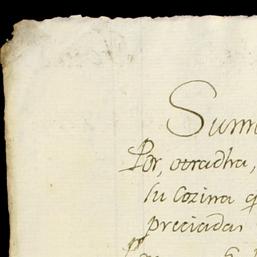 Summ
Por, otradha,
su Cozina q
preciadas